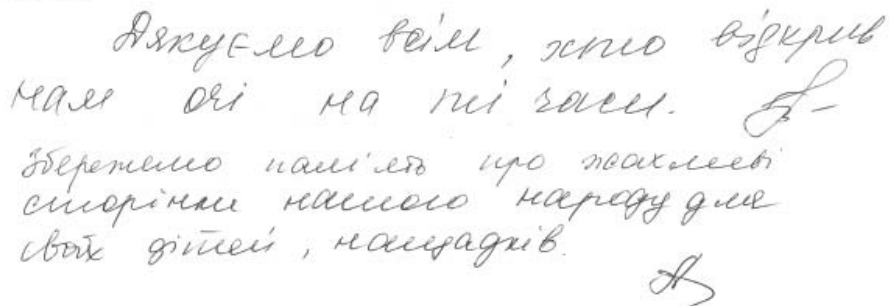 Дякуємо всім, хто відкрив
нам очі на ті часи.
Збережемо пам'ять про жахливі
сторінки нашого народу для
своїх дітей, нащадків.